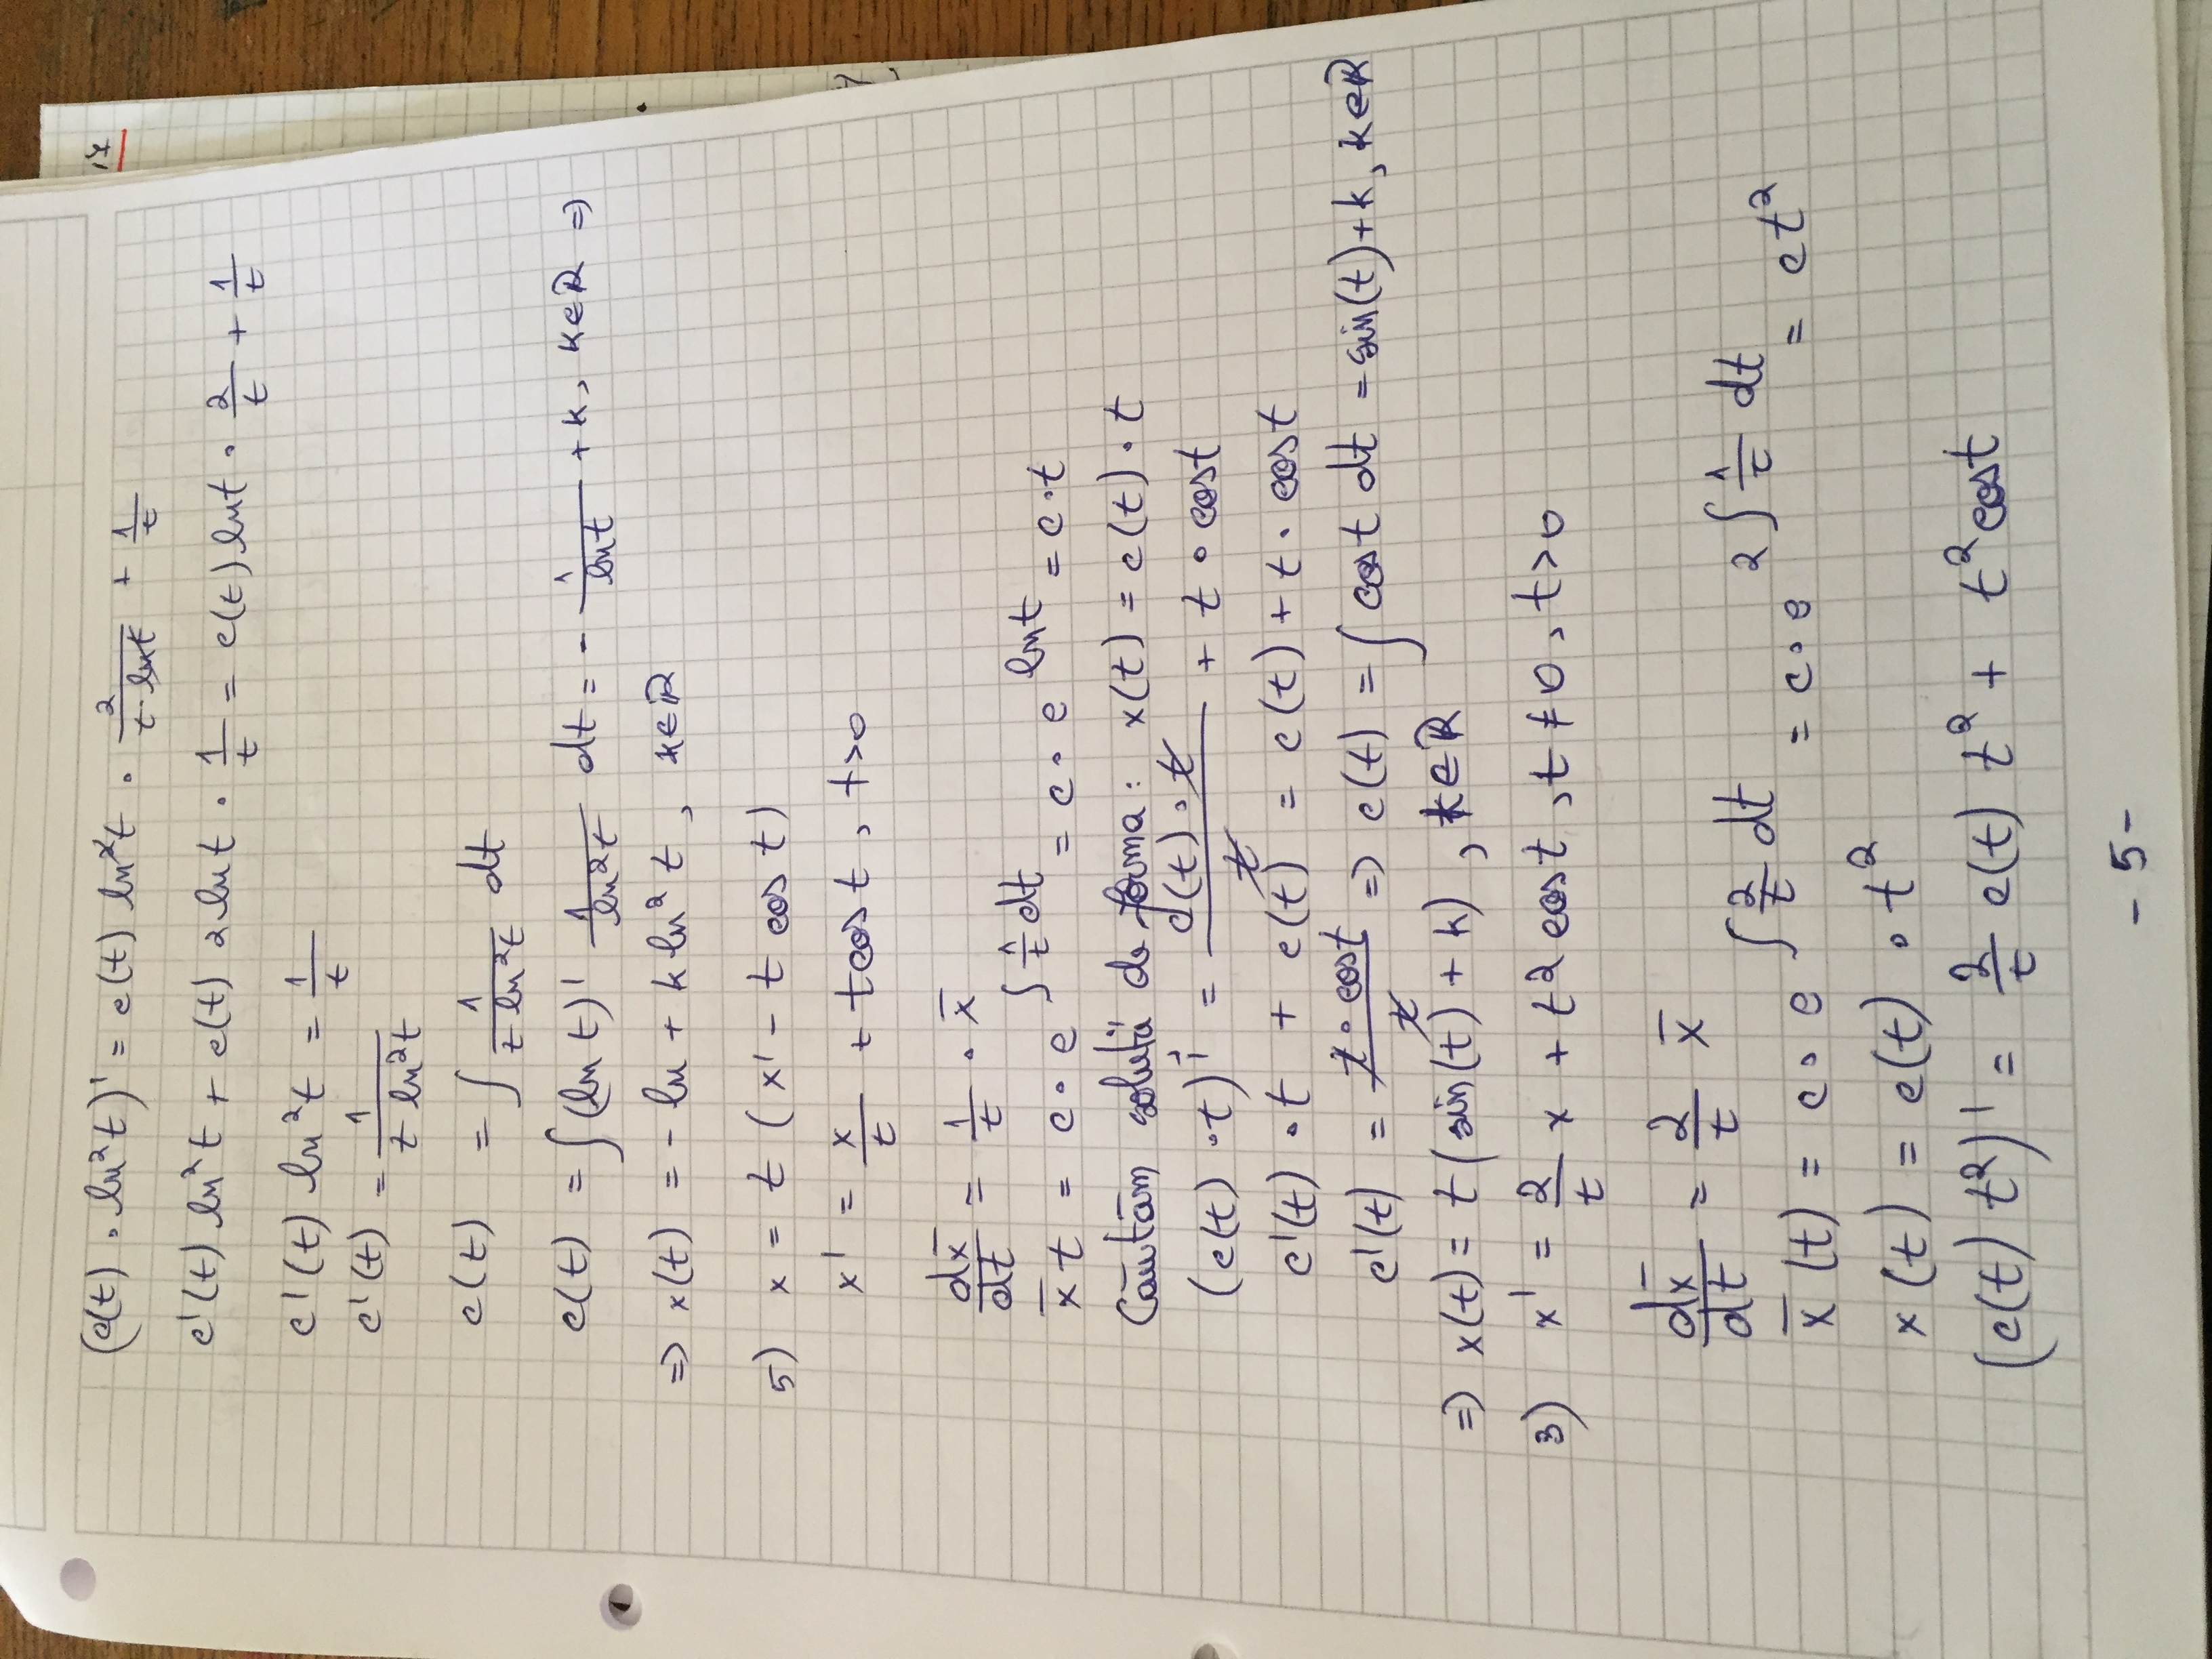 (c(t) · ln²t)' = c(t) ln²t · 2/(t·lnt) + 1/t
c'(t) ln²t + c(t) 2lnt · 1/t = c(t)lnt · 2/t + 1/t
c'(t) ln²t = 1/t
c'(t) = 1/(t ln²t)
c(t) = ∫ 1/(t ln²t) dt
c(t) = ∫(ln t)' 1/(ln²t) dt = - 1/lnt + k, k∈R =>
=> x(t) = - ln + k ln² t, k∈R
5) x = t (x' - t cos t)
x' = x/t + t cos t, t>0
dx̄/dt = 1/t · x̄
x̄ t = c · e^(∫ 1/t dt) = c · e^(lnt) = c·t
Căutăm soluții de forma: x(t) = c(t) · t
(c(t) · t)' = (c(t) · t)/t + t · cost
c'(t) · t + c(t) = c(t) + t · cost
c'(t) = (t · cost)/t => c(t) = ∫ cost dt = sin(t) + k, k∈R
=> x(t) = t(sin(t) + k), k∈R
3) x' = 2/t x + t² cost, t ≠ 0, t>0
dx̄/dt = 2/t x̄
x̄ (t) = c · e^(∫ 2/t dt) = c · e^(2∫ 1/t dt) = ct²
x(t) = c(t) · t²
(c(t) t²)' = 2/t c(t) t² + t² cost
- 5 -